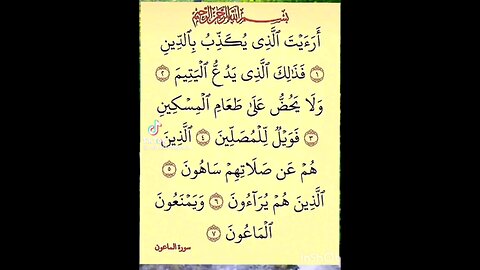 بِسْمِ اللَّهِ الرَّحْمَٰنِ الرَّحِيمِ
أَرَءَيْتَ ٱلَّذِى يُكَذِّبُ بِٱلدِّينِ
١ فَذَٰلِكَ ٱلَّذِى يَدُعُّ ٱلْيَتِيمَ ٢
وَلَا يَحُضُّ عَلَىٰ طَعَامِ ٱلْمِسْكِينِ
٣ فَوَيْلٌ لِّلْمُصَلِّينَ ٤ ٱلَّذِينَ
هُمْ عَن صَلَاتِهِمْ سَاهُونَ ٥
ٱلَّذِينَ هُمْ يُرَآءُونَ ٦ وَيَمْنَعُونَ
ٱلْمَاعُونَ ٧
سورة الماعون